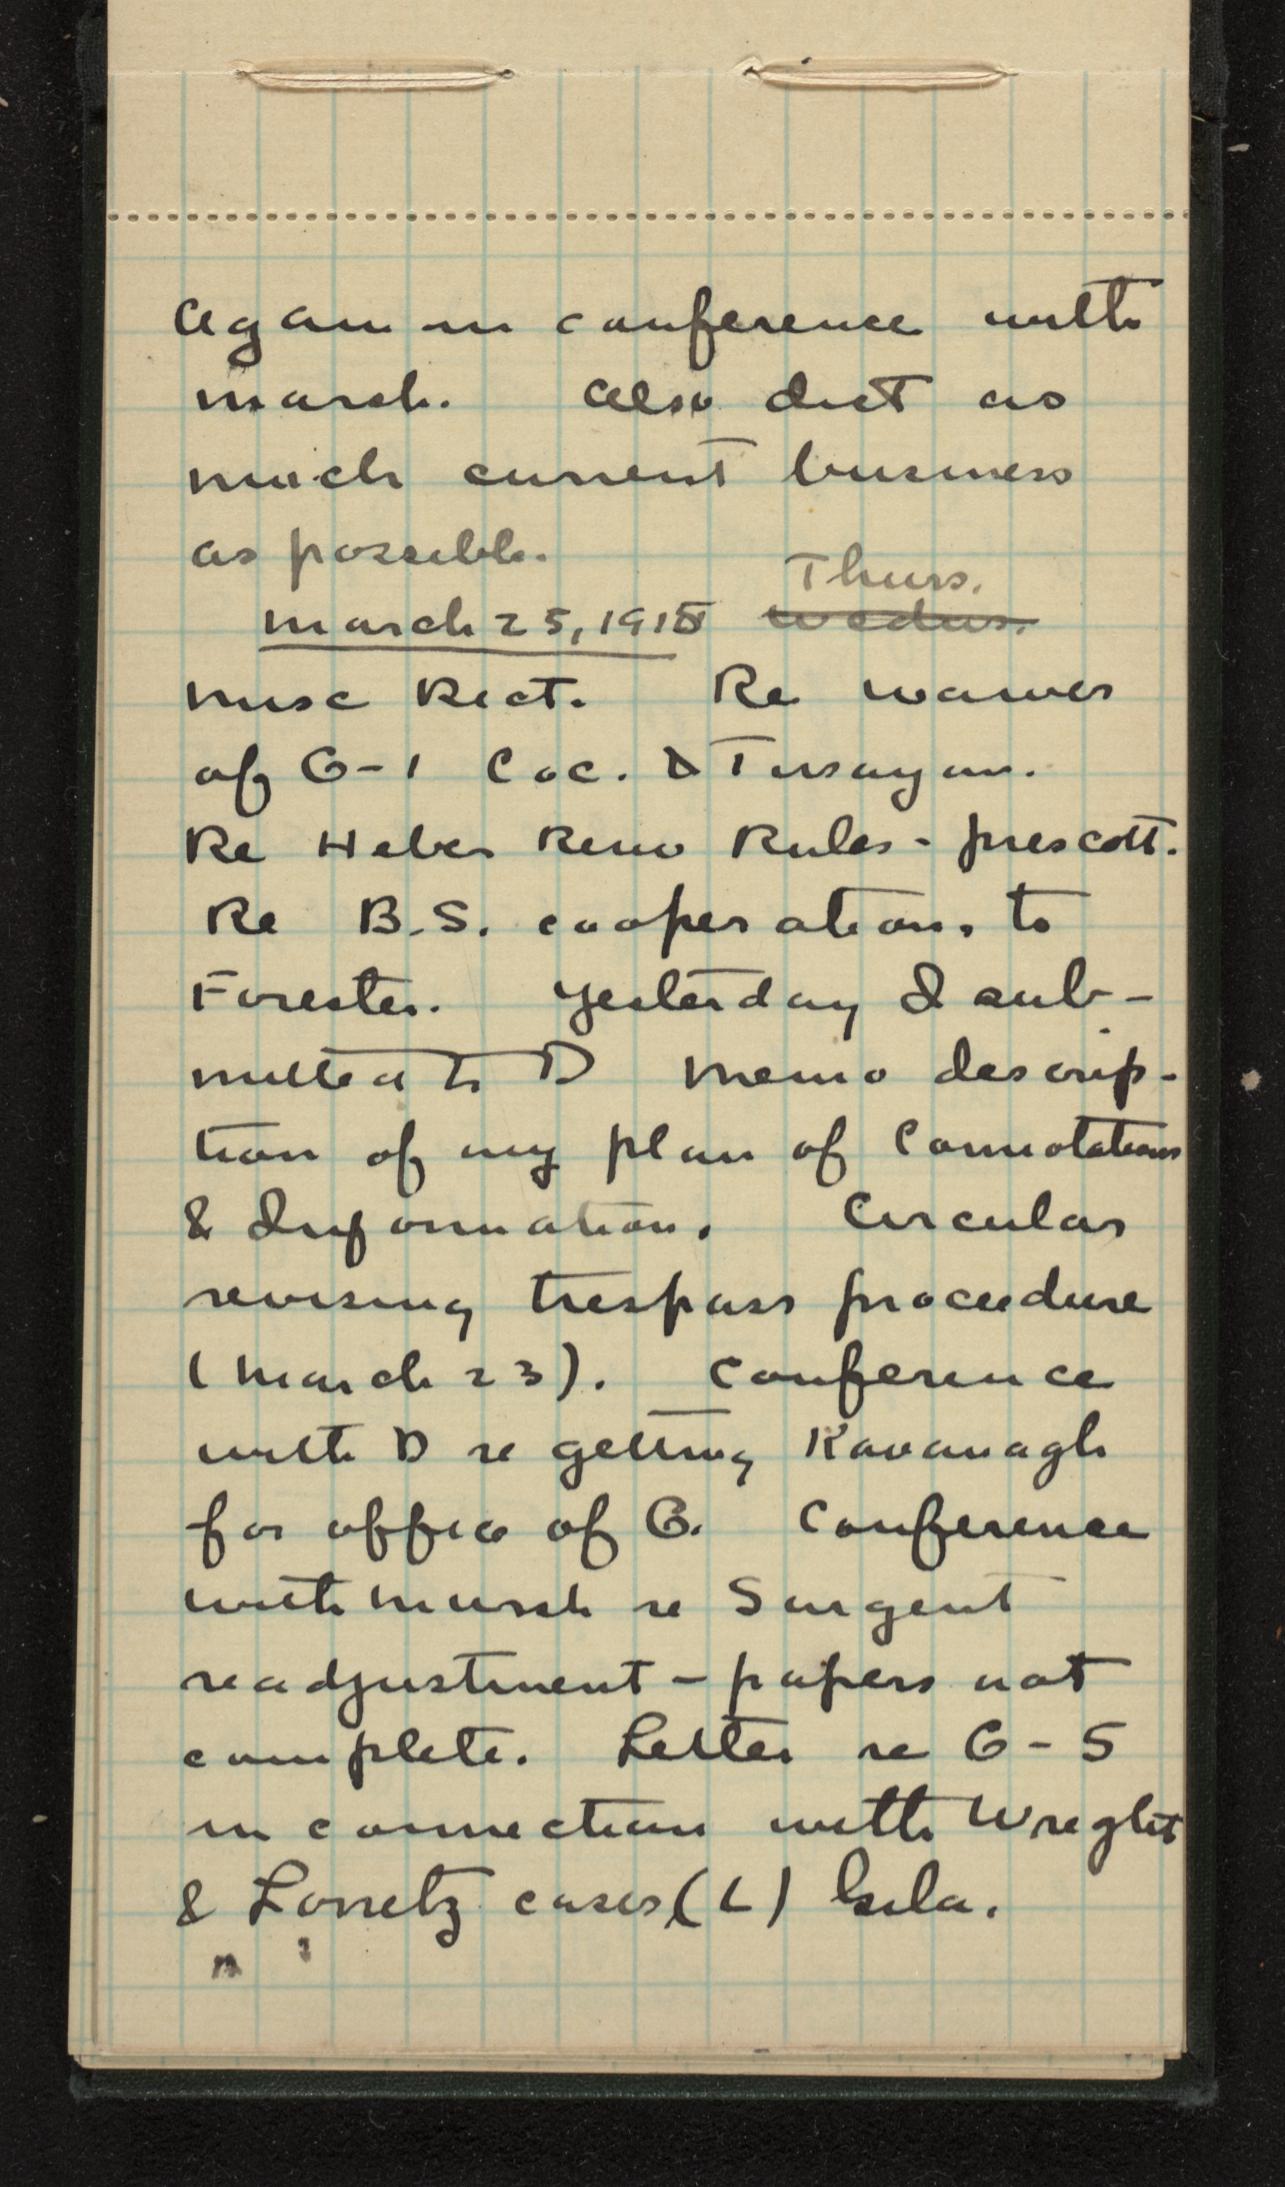 Again in conference with
Marsh. Also dict as
much current business
as possible.
Thurs.
March 25, 1915 Wednes.
Misc Dict. Re waiver
of G-1 Coc. & Tusayan.
Re Heber Reno Rules - Prescott.
Re B.S. cooperation, to
Forester. Yesterday I sub-
mitted to D memo descrip-
tion of my plan of Connotations
& Information. Circular
revising trespass proceedure
(March 23). Conference
with D re getting Kavanagh
for office of G. Conference
with Marsh re Sargent
readjustment - papers not
complete. Letter re G-5
in connection with Wright
& Lorretz cases (L) Gila.